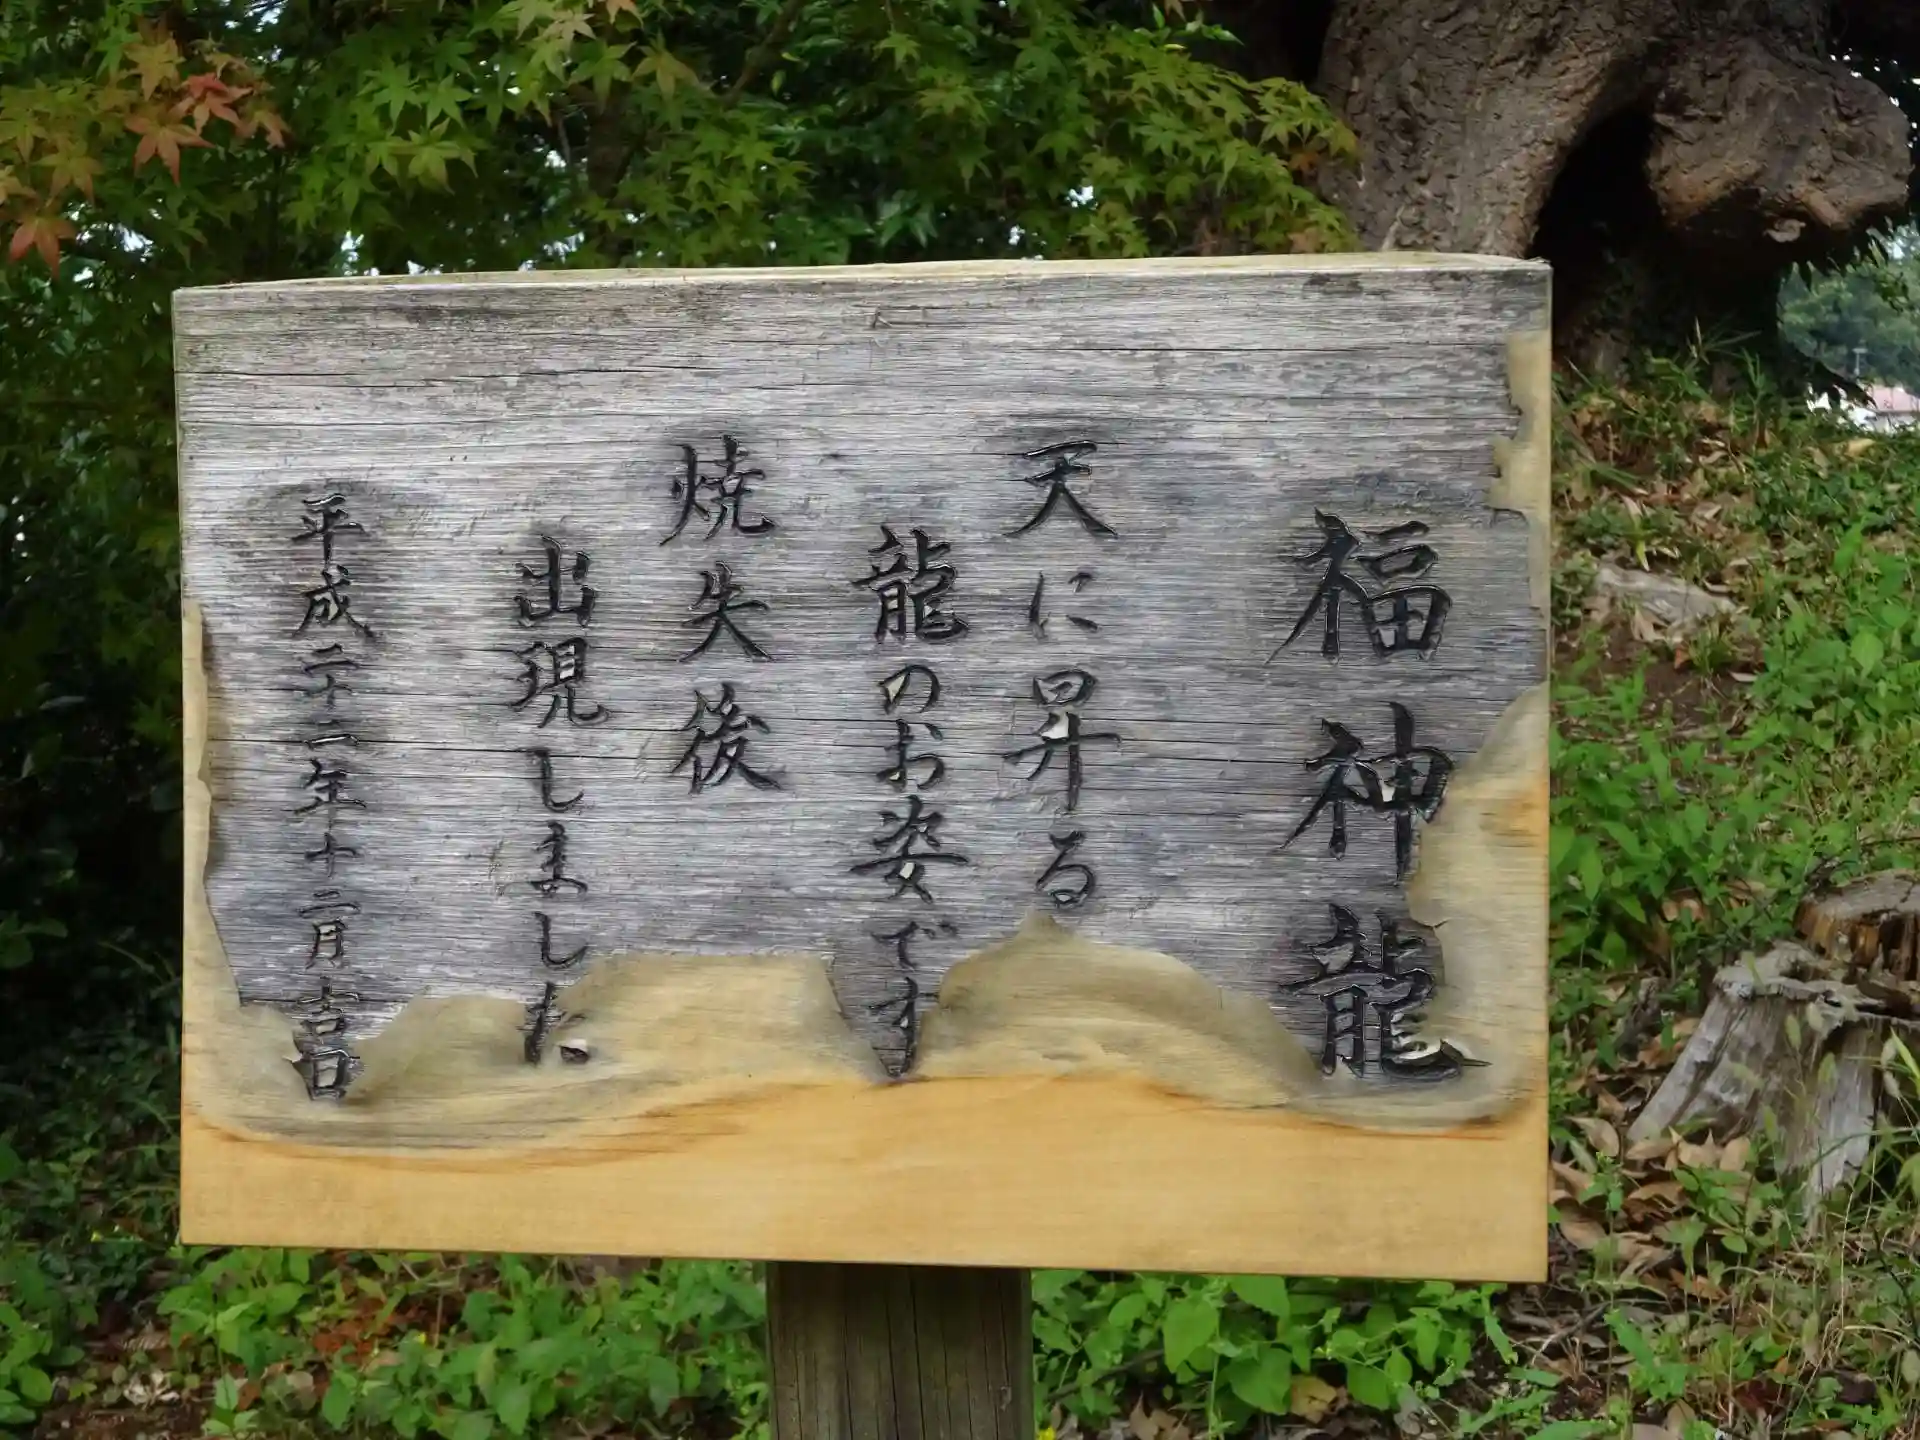 福神龍
天に昇る
龍のお姿です
焼失後
出現しました
平成二十二年十二月吉日